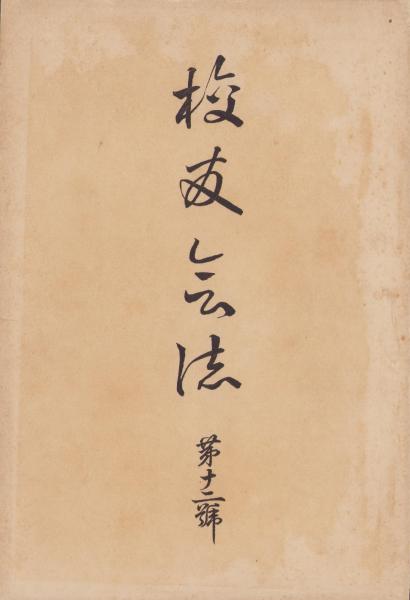 校友会誌
第十二號